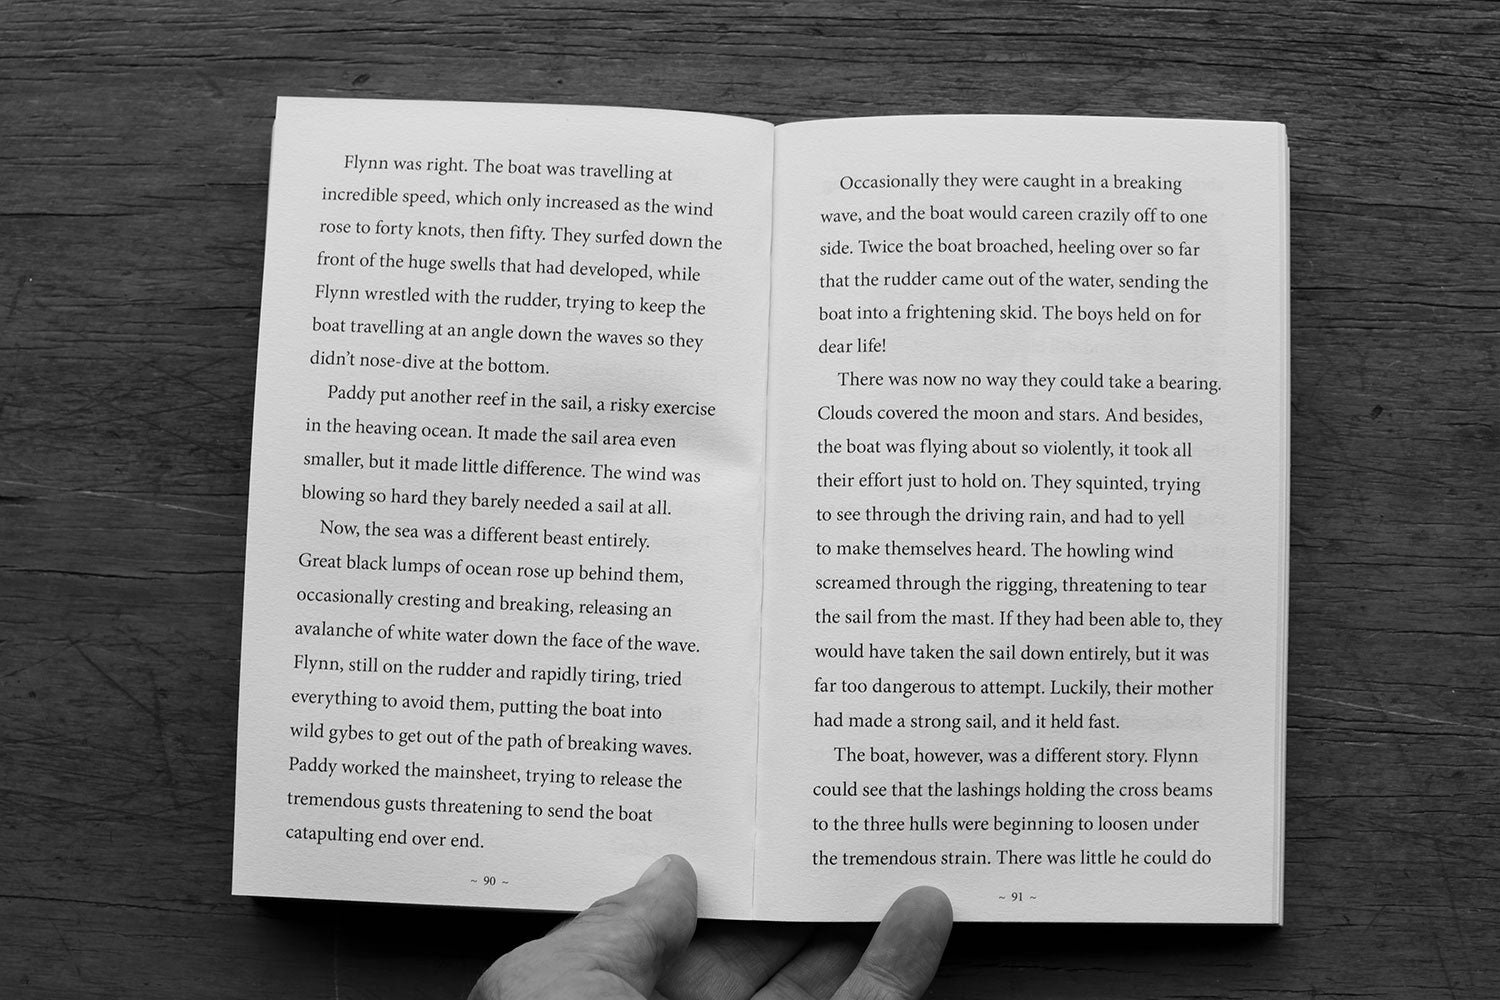 Flynn was right. The boat was travelling at
incredible speed, which only increased as the wind
rose to forty knots, then fifty. They surfed down the
front of the huge swells that had developed, while
Flynn wrestled with the rudder, trying to keep the
boat travelling at an angle down the waves so they
didn’t nose-dive at the bottom.
Paddy put another reef in the sail, a risky exercise
in the heaving ocean. It made the sail area even
smaller, but it made little difference. The wind was
blowing so hard they barely needed a sail at all.
Now, the sea was a different beast entirely.
Great black lumps of ocean rose up behind them,
occasionally cresting and breaking, releasing an
avalanche of white water down the face of the wave.
Flynn, still on the rudder and rapidly tiring, tried
everything to avoid them, putting the boat into
wild gybes to get out of the path of breaking waves.
Paddy worked the mainsheet, trying to release the
tremendous gusts threatening to send the boat
catapulting end over end.
~ 90 ~
Occasionally they were caught in a breaking
wave, and the boat would careen crazily off to one
side. Twice the boat broached, heeling over so far
that the rudder came out of the water, sending the
boat into a frightening skid. The boys held on for
dear life!
There was now no way they could take a bearing.
Clouds covered the moon and stars. And besides,
the boat was flying about so violently, it took all
their effort just to hold on. They squinted, trying
to see through the driving rain, and had to yell
to make themselves heard. The howling wind
screamed through the rigging, threatening to tear
the sail from the mast. If they had been able to, they
would have taken the sail down entirely, but it was
far too dangerous to attempt. Luckily, their mother
had made a strong sail, and it held fast.
The boat, however, was a different story. Flynn
could see that the lashings holding the cross beams
to the three hulls were beginning to loosen under
the tremendous strain. There was little he could do
~ 91 ~